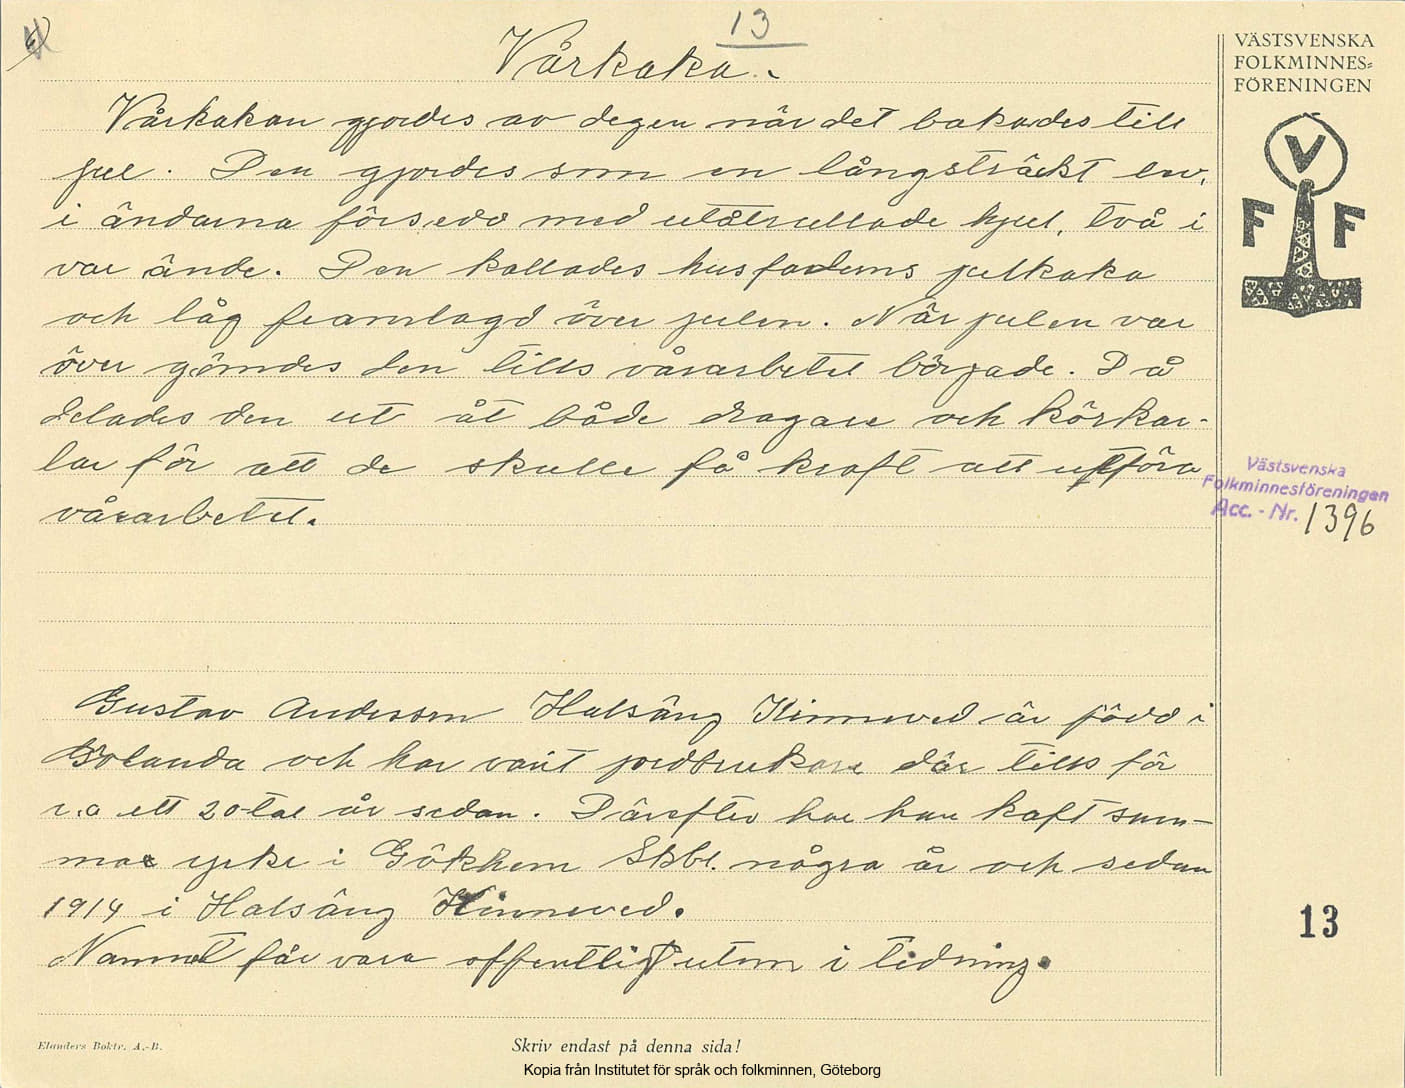 13
Vårkaka.
VÄSTSVENSKA
FOLKMINNES=
FÖRENINGEN
V
F F
Vårkakan gjordes av degen när det bakades till
jul. Den gjordes som en långsträckt lev,
i ändarna försedd med utåtrullade hjul, två i
var ände. Den kallades husfaderns julkaka
och låg framlagd över julen. När julen var
över gömdes den tills vårarbetet började. Då
delades den ut åt både dragare och körkar-
lar för att de skulle få kraft att utföra
vårarbetet.
Västsvenska
Folkminnesföreningen
Acc. - Nr. 1396
Gustav Andersson Halsäng Kinneved är född i
Grolanda och har varit jordbrukare där tills för
c:a ett 20-tal år sedan. Därefter har han haft sam-
ma yrke i Gökhem Skbl. några år och sedan
1914 i Halsäng Kinneved.
Namnet får vara offentligt utom i tidning.
13
Elanders Boktr. A.-B.
Skriv endast på denna sida!
Kopia från Institutet för språk och folkminnen, Göteborg